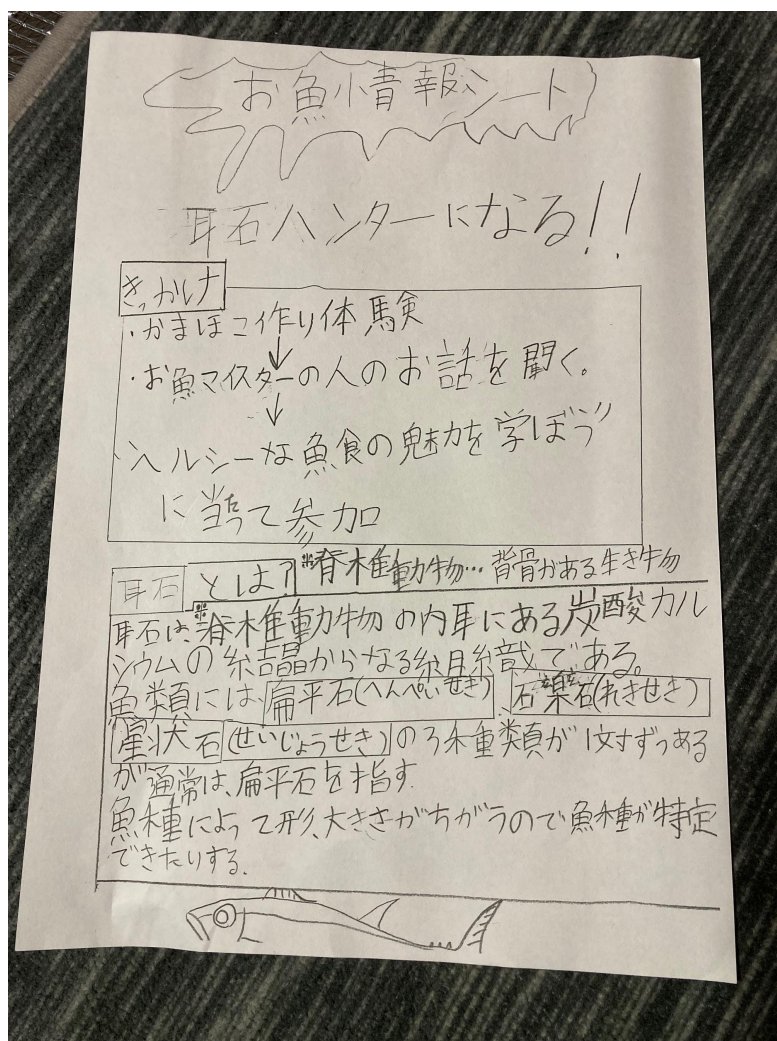 お魚情報シート
耳石ハンターになる!!
きっかけ
・かまぼこ作り体験
↓
・お魚マイスターの人のお話を聞く。
↓
・ヘルシーな魚食の魅力を学ぼう"
に当たって参加
耳石とは?
※脊椎動物…背骨がある生き物
耳石は、※脊椎動物の内耳にある炭酸カル
シウムの結晶からなる組織である。
魚類には、扁平石(へんぺいせき)、礫石(れきせき)
星状石(せいじょうせき)の3種類が1対ずつある
が通常は、扁平石を指す。
魚種によって形、大きさがちがうので魚種が特定
できたりする。